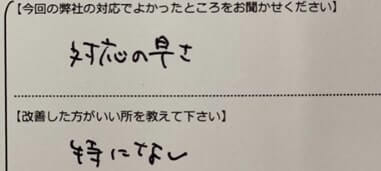 【今回の弊社の対応でよかったところをお聞かせください】
対応の早さ
【改善した方がいい所を教えて下さい】
特になし